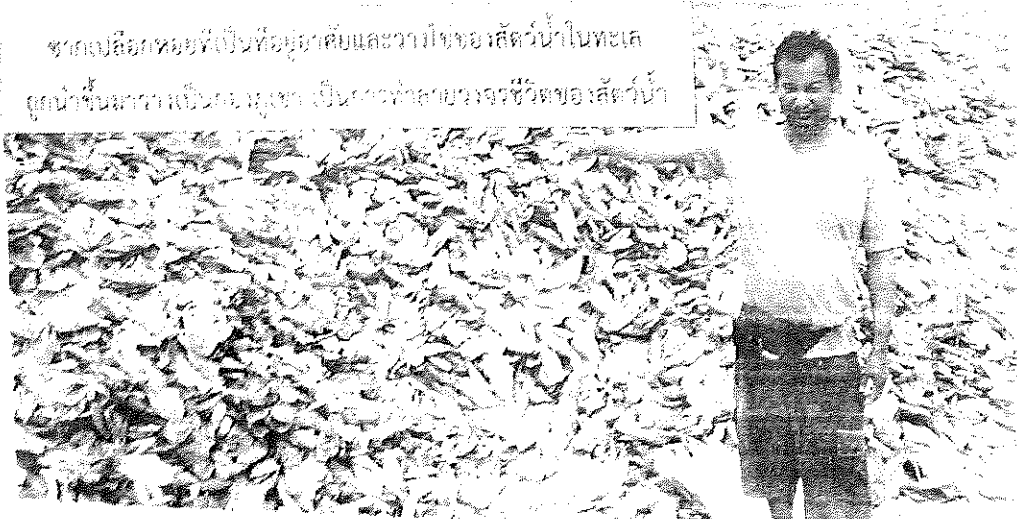 ซากเปลือกหอยที่เป็นที่อยู่อาศัยและวางไข่ของสัตว์น้ำในทะเล
ถูกนำขึ้นมาวางเป็นกองภูเขา เป็นการทำลายวงจรชีวิตของสัตว์น้ำ